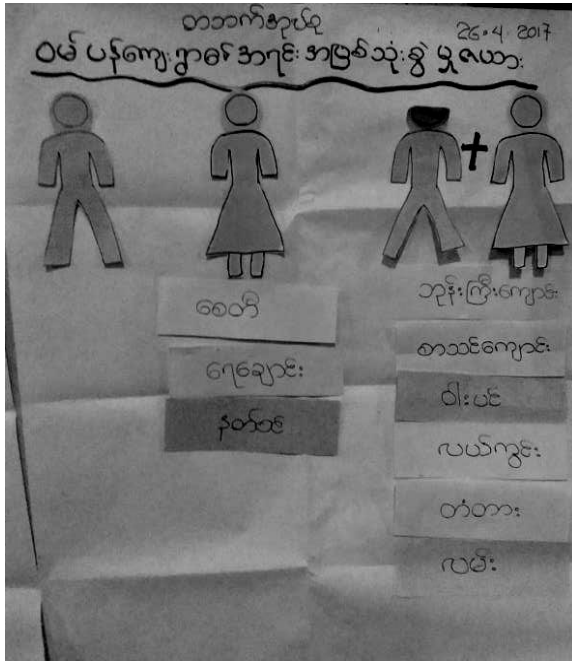 တဘက်အုပ်စု
26.4.2017
ဝမ်ပန်ကျေးရွာ၏ အရင်းအမြစ်သုံးစွဲမှုဇယား
စေတီ
ရေချောင်း
နတ်စင်
ဘုန်းကြီးကျောင်း
စာသင်ကျောင်း
ဝါးပင်
လယ်ကွင်း
တံတား
လမ်း